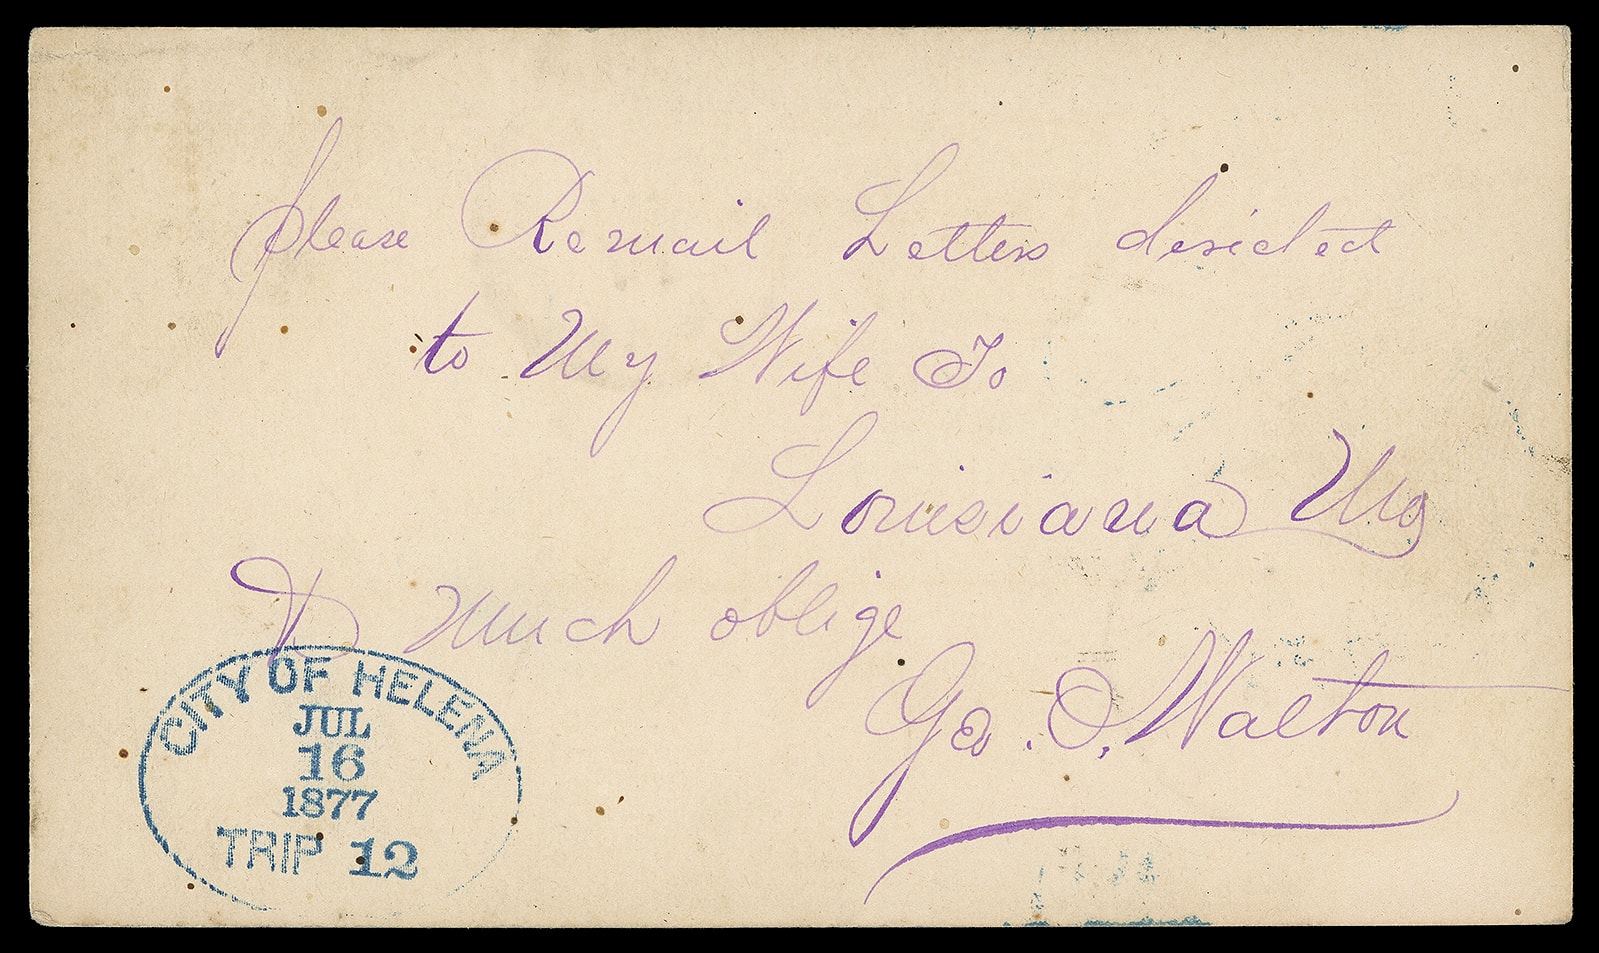 please Remail Letters desicted
to My Wife To
Louisiana Mo
& Much oblige
Geo. O. Walton
CITY OF HELENA
JUL
16
1877
TRIP 12